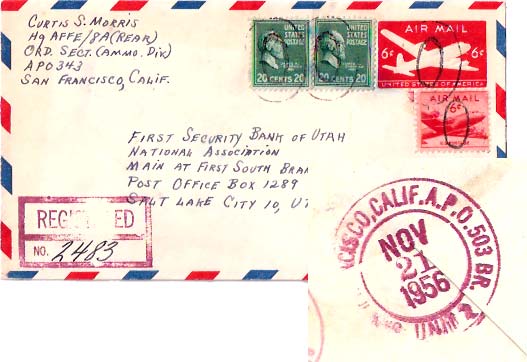 CURTIS S. MORRIS
HQ AFFE/8A(REAR)
ORD. SECT.(AMMO. DIV)
APO 343
SAN FRANCISCO, CALIF.
UNITED STATES POSTAGE
20 CENTS 20
UNITED STATES POSTAGE
20 CENTS 20
AIR MAIL
6¢ 6¢
UNITED STATES OF AMERICA
AIR MAIL
6¢
FIRST SECURITY BANK OF UTAH
NATIONAL ASSOCIATION
MAIN AT FIRST SOUTH BRAN
POST OFFICE BOX 1289
SALT LAKE CITY 10, UT
REGISTERED
NO. 2483
CISCO, CALIF. A.P.O. 503 BR.
NOV
21
1956
UNIT 2